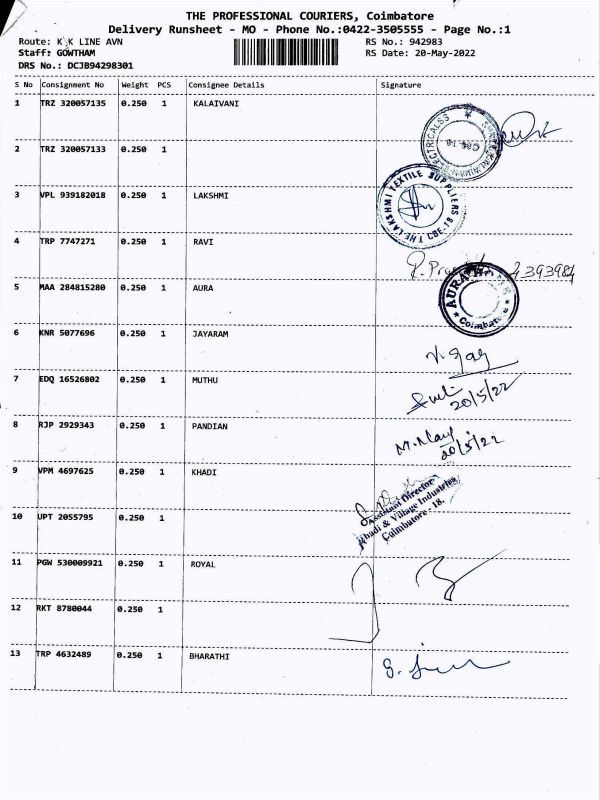 THE PROFESSIONAL COURIERS, Coimbatore
Delivery Runsheet - MO - Phone No.:0422-3505555 - Page No.:1
Route: K K LINE AVN RS No.: 942983
Staff: GOWTHAM RS Date: 20-May-2022
DRS No.: DCJB94298301
S No Consignment No Weight PCS Consignee Details Signature
1 TRZ 320057135 0.250 1 KALAIVANI
2 TRZ 320057133 0.250 1
3 VPL 939182018 0.250 1 LAKSHMI
THE LAKSHMI TEXTILE SUPPLIERS CBE-18
4 TRP 7747271 0.250 1 RAVI
5 MAA 284815280 0.250 1 AURA
AURA
Coimbatore
6 KNR 5077696 0.250 1 JAYARAM
7 EDQ 16526802 0.250 1 MUTHU
20/5/22
8 RJP 2929343 0.250 1 PANDIAN
20/5/22
9 VPM 4697625 0.250 1 KHADI
Assistant Director
Khadi & Village Industries
Coimbatore - 18.
10 UPT 2055795 0.250 1
11 PGW 530009921 0.250 1 ROYAL
12 RKT 8780044 0.250 1
13 TRP 4632489 0.250 1 BHARATHI